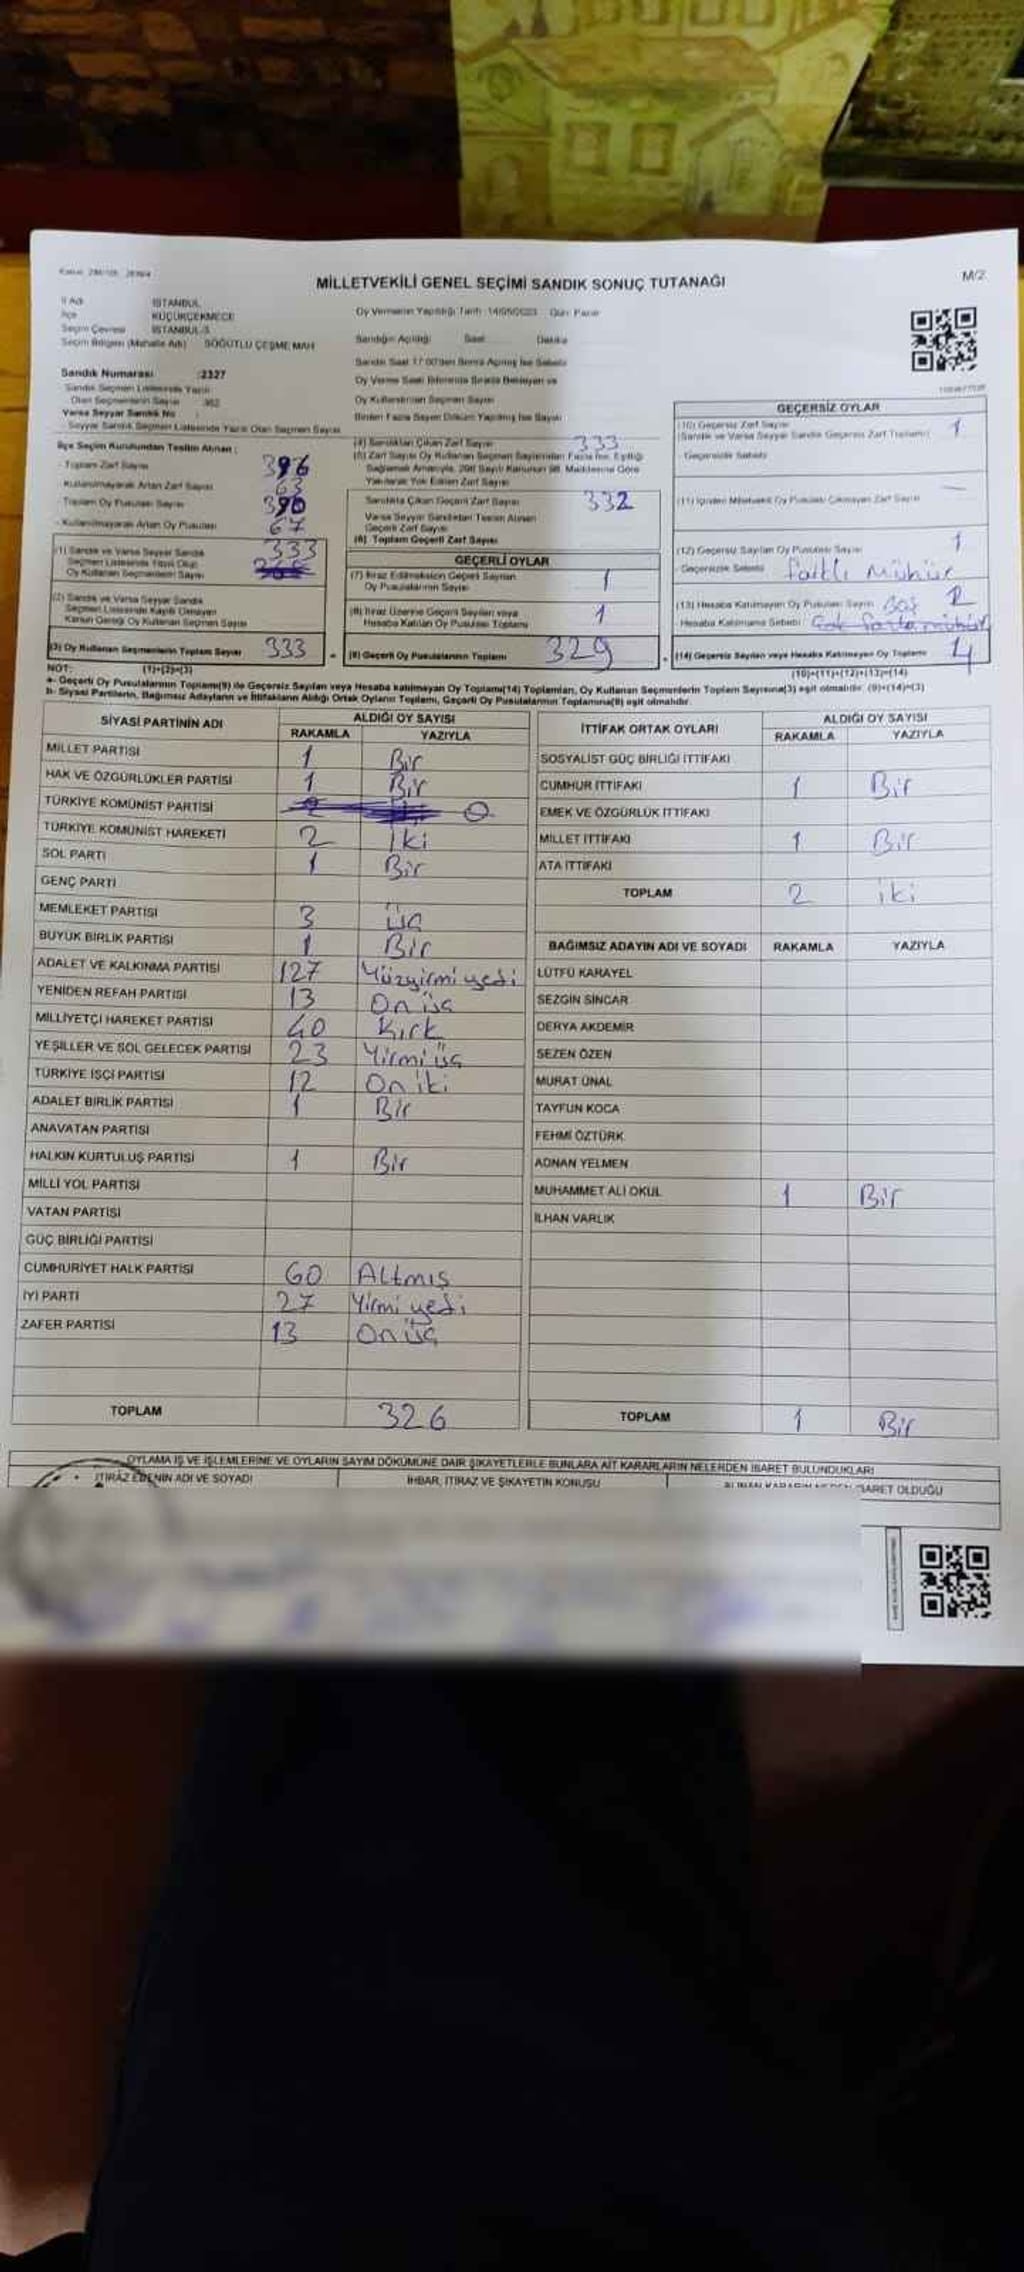 MİLLETVEKİLİ GENEL SEÇİMİ SANDIK SONUÇ TUTANAĞI
M/2
İl Adı İSTANBUL
İlçe KÜÇÜKÇEKMECE
Seçim Çevresi İSTANBUL-3
Seçim Bölgesi (Mahalle Adı) SÖĞÜTLÜ ÇEŞME MAH
Oy Vermenin Yapıldığı Tarih :14/05/2023 Gün: Pazar
Sandığın Açıldığı Saat Dakika
Sandık Numarası :2327
Sandık Seçmen Listesinde Yazılı
Olan Seçmenlerin Sayısı
Varsa Seyyar Sandık No :
Seyyar Sandık Seçmen Listesinde Yazılı Olan Seçmen Sayısı
İlçe Seçim Kurulundan Teslim Alınan :
Toplam Zarf Sayısı 396
Kullanılmayarak Artan Zarf Sayısı 63
Toplam Oy Pusulası Sayısı 390
Kullanılmayarak Artan Oy Pusulası 67
(1) Sandık ve Varsa Seyyar Sandık
Seçmen Listesinde Yazılı Olup
Oy Kullanan Seçmenlerin Sayısı 333
(2) Sandık ve Varsa Seyyar Sandık
Seçmen Listesinde Kayıtlı Olmayan
Kanun Gereği Oy Kullanan Seçmen Sayısı
(3) Oy Kullanan Seçmenlerin Toplam Sayısı 333
(4) Sandıktan Çıkan Zarf Sayısı 333
(5) Zarf Sayısı Oy Kullanan Seçmen Sayısından Fazla İse, Eşitliği
Sağlamak Amacıyla, 298 Sayılı Kanunun 98. Maddesine Göre
Yakılarak Yok Edilen Zarf Sayısı
Sandıkta Çıkan Geçerli Zarf Sayısı 332
Varsa Seyyar Sandıktan Teslim Alınan
Geçerli Zarf Sayısı
(6) Toplam Geçerli Zarf Sayısı
GEÇERLİ OYLAR
(7) İtiraz Edilmeksizin Geçerli Sayılan
Oy Pusulalarının Sayısı 1
(8) İtiraz Üzerine Geçerli Sayılan veya
Hesaba Katılan Oy Pusulası Toplamı 1
(9) Geçerli Oy Pusulalarının Toplamı 329
GEÇERSİZ OYLAR
(10) Geçersiz Zarf Sayısı
(Sandık ve Varsa Seyyar Sandık Geçersiz Zarf Toplamı) 1
Geçersizlik Sebebi
(11) İçinden Milletvekili Oy Pusulası Çıkmayan Zarf Sayısı —
(12) Geçersiz Sayılan Oy Pusulası Sayısı 1
Geçersizlik Sebebi farklı mühür
(13) Hesaba Katılmayan Oy Pusulası Sayısı 2
Hesaba Katılmama Sebebi
(14) Geçersiz Sayılan veya Hesaba Katılmayan Oy Toplamı 4
NOT: (1)+(2)=(3)
(10)+(11)+(12)+(13)=(14)
a- Geçerli Oy Pusulalarının Toplamı(9) ile Geçersiz Sayılan veya Hesaba katılmayan Oy Toplamı(14) Toplamları, Oy Kullanan Seçmenlerin Toplam Sayısına(3) eşit olmalıdır. (9)+(14)=(3)
b- Siyasi Partilerin, Bağımsız Adayların ve İttifakların Aldığı Ortak Oyların Toplamı, Geçerli Oy Pusulalarının Toplamına(9) eşit olmalıdır.
SİYASİ PARTİNİN ADI ALDIĞI OY SAYISI
RAKAMLA YAZIYLA
MİLLET PARTİSİ 1 Bir
HAK VE ÖZGÜRLÜKLER PARTİSİ 1 Bir
TÜRKİYE KOMÜNİST PARTİSİ 0
TÜRKİYE KOMÜNİST HAREKETİ 2 İki
SOL PARTİ 1 Bir
GENÇ PARTİ
MEMLEKET PARTİSİ 3 üç
BÜYÜK BİRLİK PARTİSİ 1 Bir
ADALET VE KALKINMA PARTİSİ 127 Yüzyirmi yedi
YENİDEN REFAH PARTİSİ 13 On üç
MİLLİYETÇİ HAREKET PARTİSİ 40 Kırk
YEŞİLLER VE SOL GELECEK PARTİSİ 23 Yirmi üç
TÜRKİYE İŞÇİ PARTİSİ 12 On iki
ADALET BİRLİK PARTİSİ 1 Bir
ANAVATAN PARTİSİ
HALKIN KURTULUŞ PARTİSİ 1 Bir
MİLLİ YOL PARTİSİ
VATAN PARTİSİ
GÜÇ BİRLİĞİ PARTİSİ
CUMHURİYET HALK PARTİSİ 60 Altmış
İYİ PARTİ 27 Yirmi yedi
ZAFER PARTİSİ 13 On üç
TOPLAM 326
İTTİFAK ORTAK OYLARI ALDIĞI OY SAYISI
RAKAMLA YAZIYLA
SOSYALİST GÜÇ BİRLİĞİ İTTİFAKI
CUMHUR İTTİFAKI 1 Bir
EMEK VE ÖZGÜRLÜK İTTİFAKI
MİLLET İTTİFAKI 1 Bir
ATA İTTİFAKI
TOPLAM 2 iki
BAĞIMSIZ ADAYIN ADI VE SOYADI RAKAMLA YAZIYLA
LÜTFÜ KARAYEL
SEZGİN SİNCAR
DERYA AKDEMİR
SEZEN ÖZEN
MURAT ÜNAL
TAYFUN KOCA
FEHMİ ÖZTÜRK
ADNAN YELMEN
MUHAMMET ALİ OKUL 1 Bir
İLHAN VARLIK
TOPLAM 1 Bir
OYLAMA İŞ VE İŞLEMLERİNE VE OYLARIN SAYIM DÖKÜMÜNE DAİR ŞİKAYETLERLE BUNLARA AİT KARARLARIN NELERDEN İBARET BULUNDUKLARI
İTİRAZ EDENİN ADI VE SOYADI İHBAR, İTİRAZ VE ŞİKAYETİN KONUSU